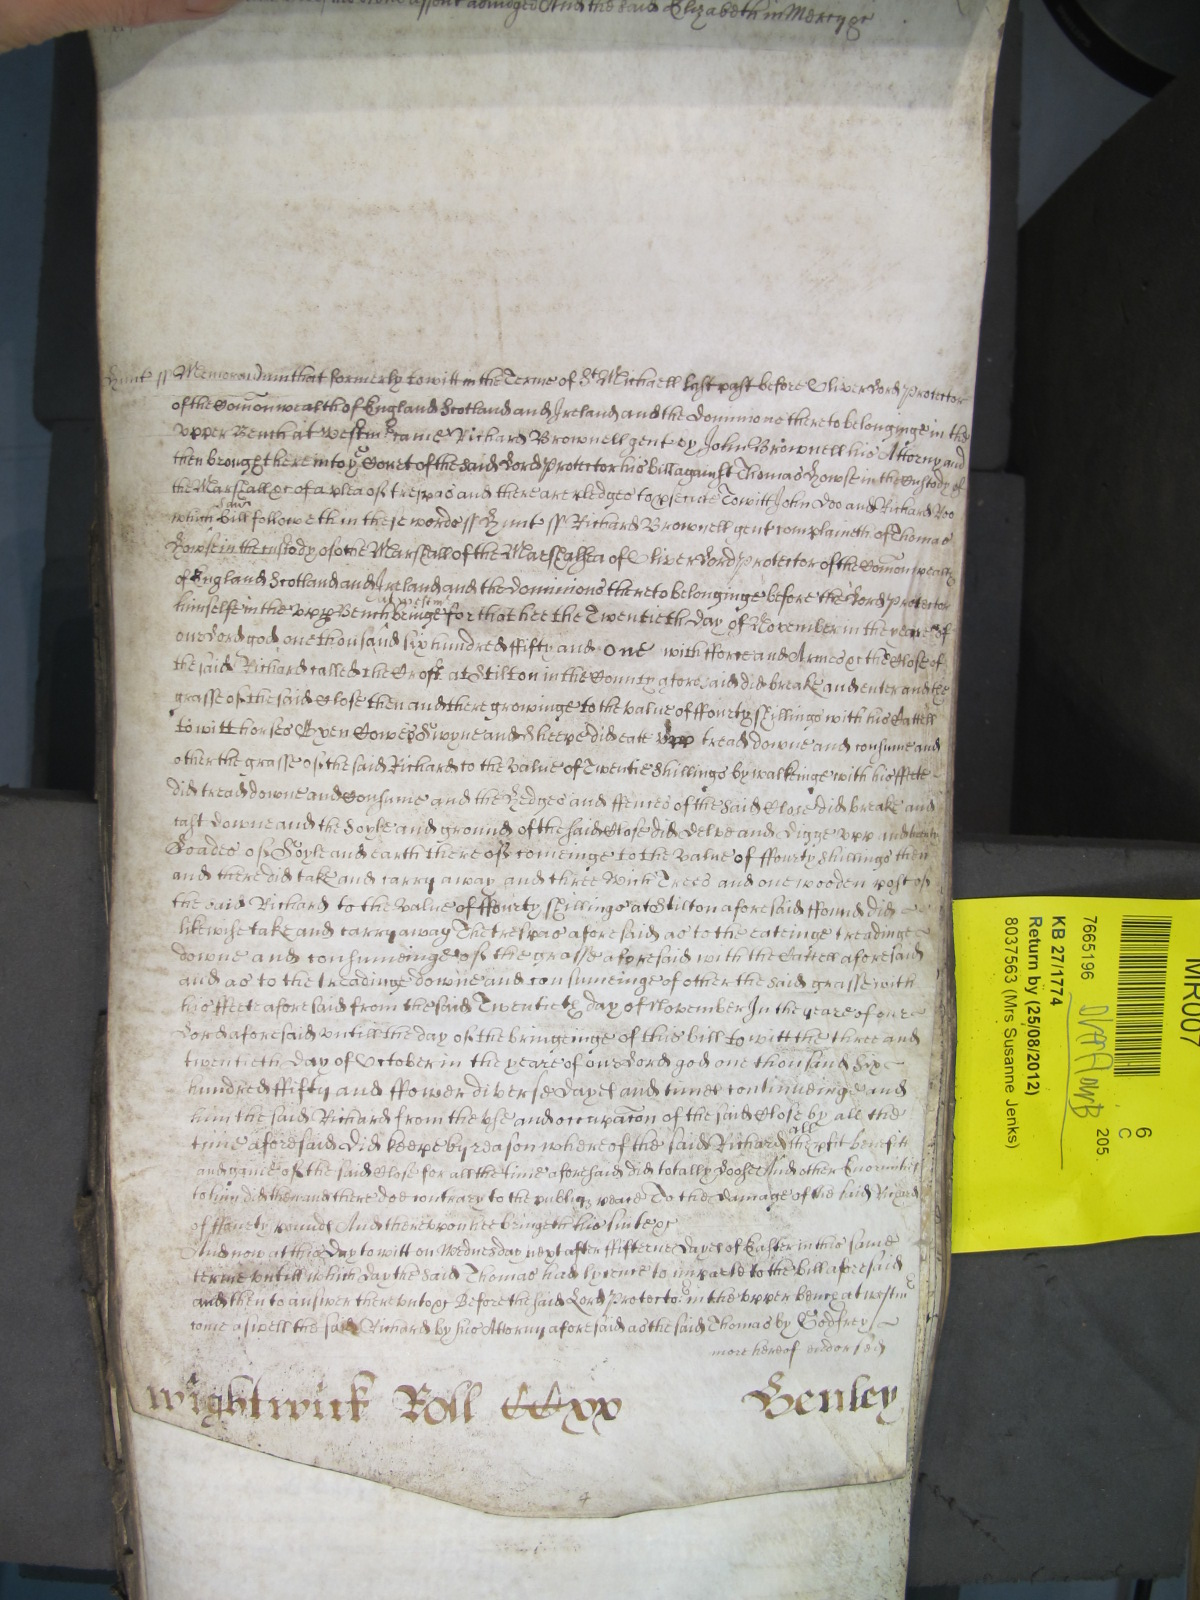 assent adjudged And the said Elizabeth in Mercy &c
Hunt ss Memorandum that formerly to witt in the Terme of St Michaell last past before Oliver Lord Protector
of the Comon wealth of England Scotland and Ireland and the dominions thereto belonginge in the
Upper Bench at Westmr came Richard Brownell gent by John Brownell his Attorny and
then brought here into ye Court of the said Lord Protector his bill against Thomas Howse in the Custody of
the Marshall &c of a plea of trespas and there are pledges to psecute To witt John Doo and Richard Roo
which said bill followeth in these words ss Hunt ss Richard Brownell gent complaineth of Thomas
Howse in the custody of the Marshall of the Marshalsea of Oliver Lord Protector of the Comon wealth
of England Scotland and Ireland and the dominions thereto belonginge before the Lord Protector
himselfe in the upp Bench at Westmr beinge for that hee the Twentieth day of November in the yeare of
our Lord god one thousand six hundred ffifty and one with fforce and Armes &c the Close of
the said Richard called the Croft at Stilton in the County aforesaid did breake and enter and the
grasse of the said Close then and there growinge to the value of ffourty shillings with his Cattell
to witt horses Oxen Cowes Swyne and sheepe did eate upp tread downe and consume and
other the grasse of the said Richard to the value of Twentie shillings by walkeinge with his ffeete
did tread downe and Consume and the Hedges and ffences of the said Close did breake and
cast downe and the soyle and ground of the said Close did delve and digge upp and twenty
Loades of Soyle and earth thereof comeinge to the value of ffourty shillings then
and there did take and carry away and three Wich Trees and one wooden post of
the said Richard to the value of ffourty shillings at Stilton aforesaid ffound did
likewise take and carry away The trespas aforesaid as to the eateinge treadinge
downe and consumeinge of the grasse aforesaid with the Cattell aforesaid
and as to the treadinge downe and consumeinge of other the said grasse with
his ffeete aforesaid from the said Twentieth day of November In the yeare of our
Lord aforesaid untill the day of the bringeinge of this bill to witt the three and
twentieth day of October in the yeare of our Lord god one thousand Six
hundred ffifty and ffower diverse dayes and times continueinge and
him the said Richard from the use and occupacon of the said Close by all the
time aforesaid did keepe by reason whereof the said Richard all the pfit benefitt
and gaine of the said Close for all the time aforesaid did totally loose And other Enormities
to him did then and there doe contrary to the publiq peace To the damage of the said Richard
of ffourty pounds And thereupon hee bringeth his suite &c
And now at this day to witt on Wednesday next after ffifteene dayes of Easter in this same
terme untill which day the said Thomas had lycence to imparle to the bill aforesaid
and then to answer thereunto &c Before the said Lord Protector in the upper bench at westmr
come aswell the said Richard by his Attorny aforesaid as the said Thomas by Godfrey
more hereof endorsed
Wightwick Roll CCxx Henley
4
MR007
6
C
7665196 205.
KB 27/1774
Return by (25/08/2012)
8037563 (Mrs Susanne Jenks)